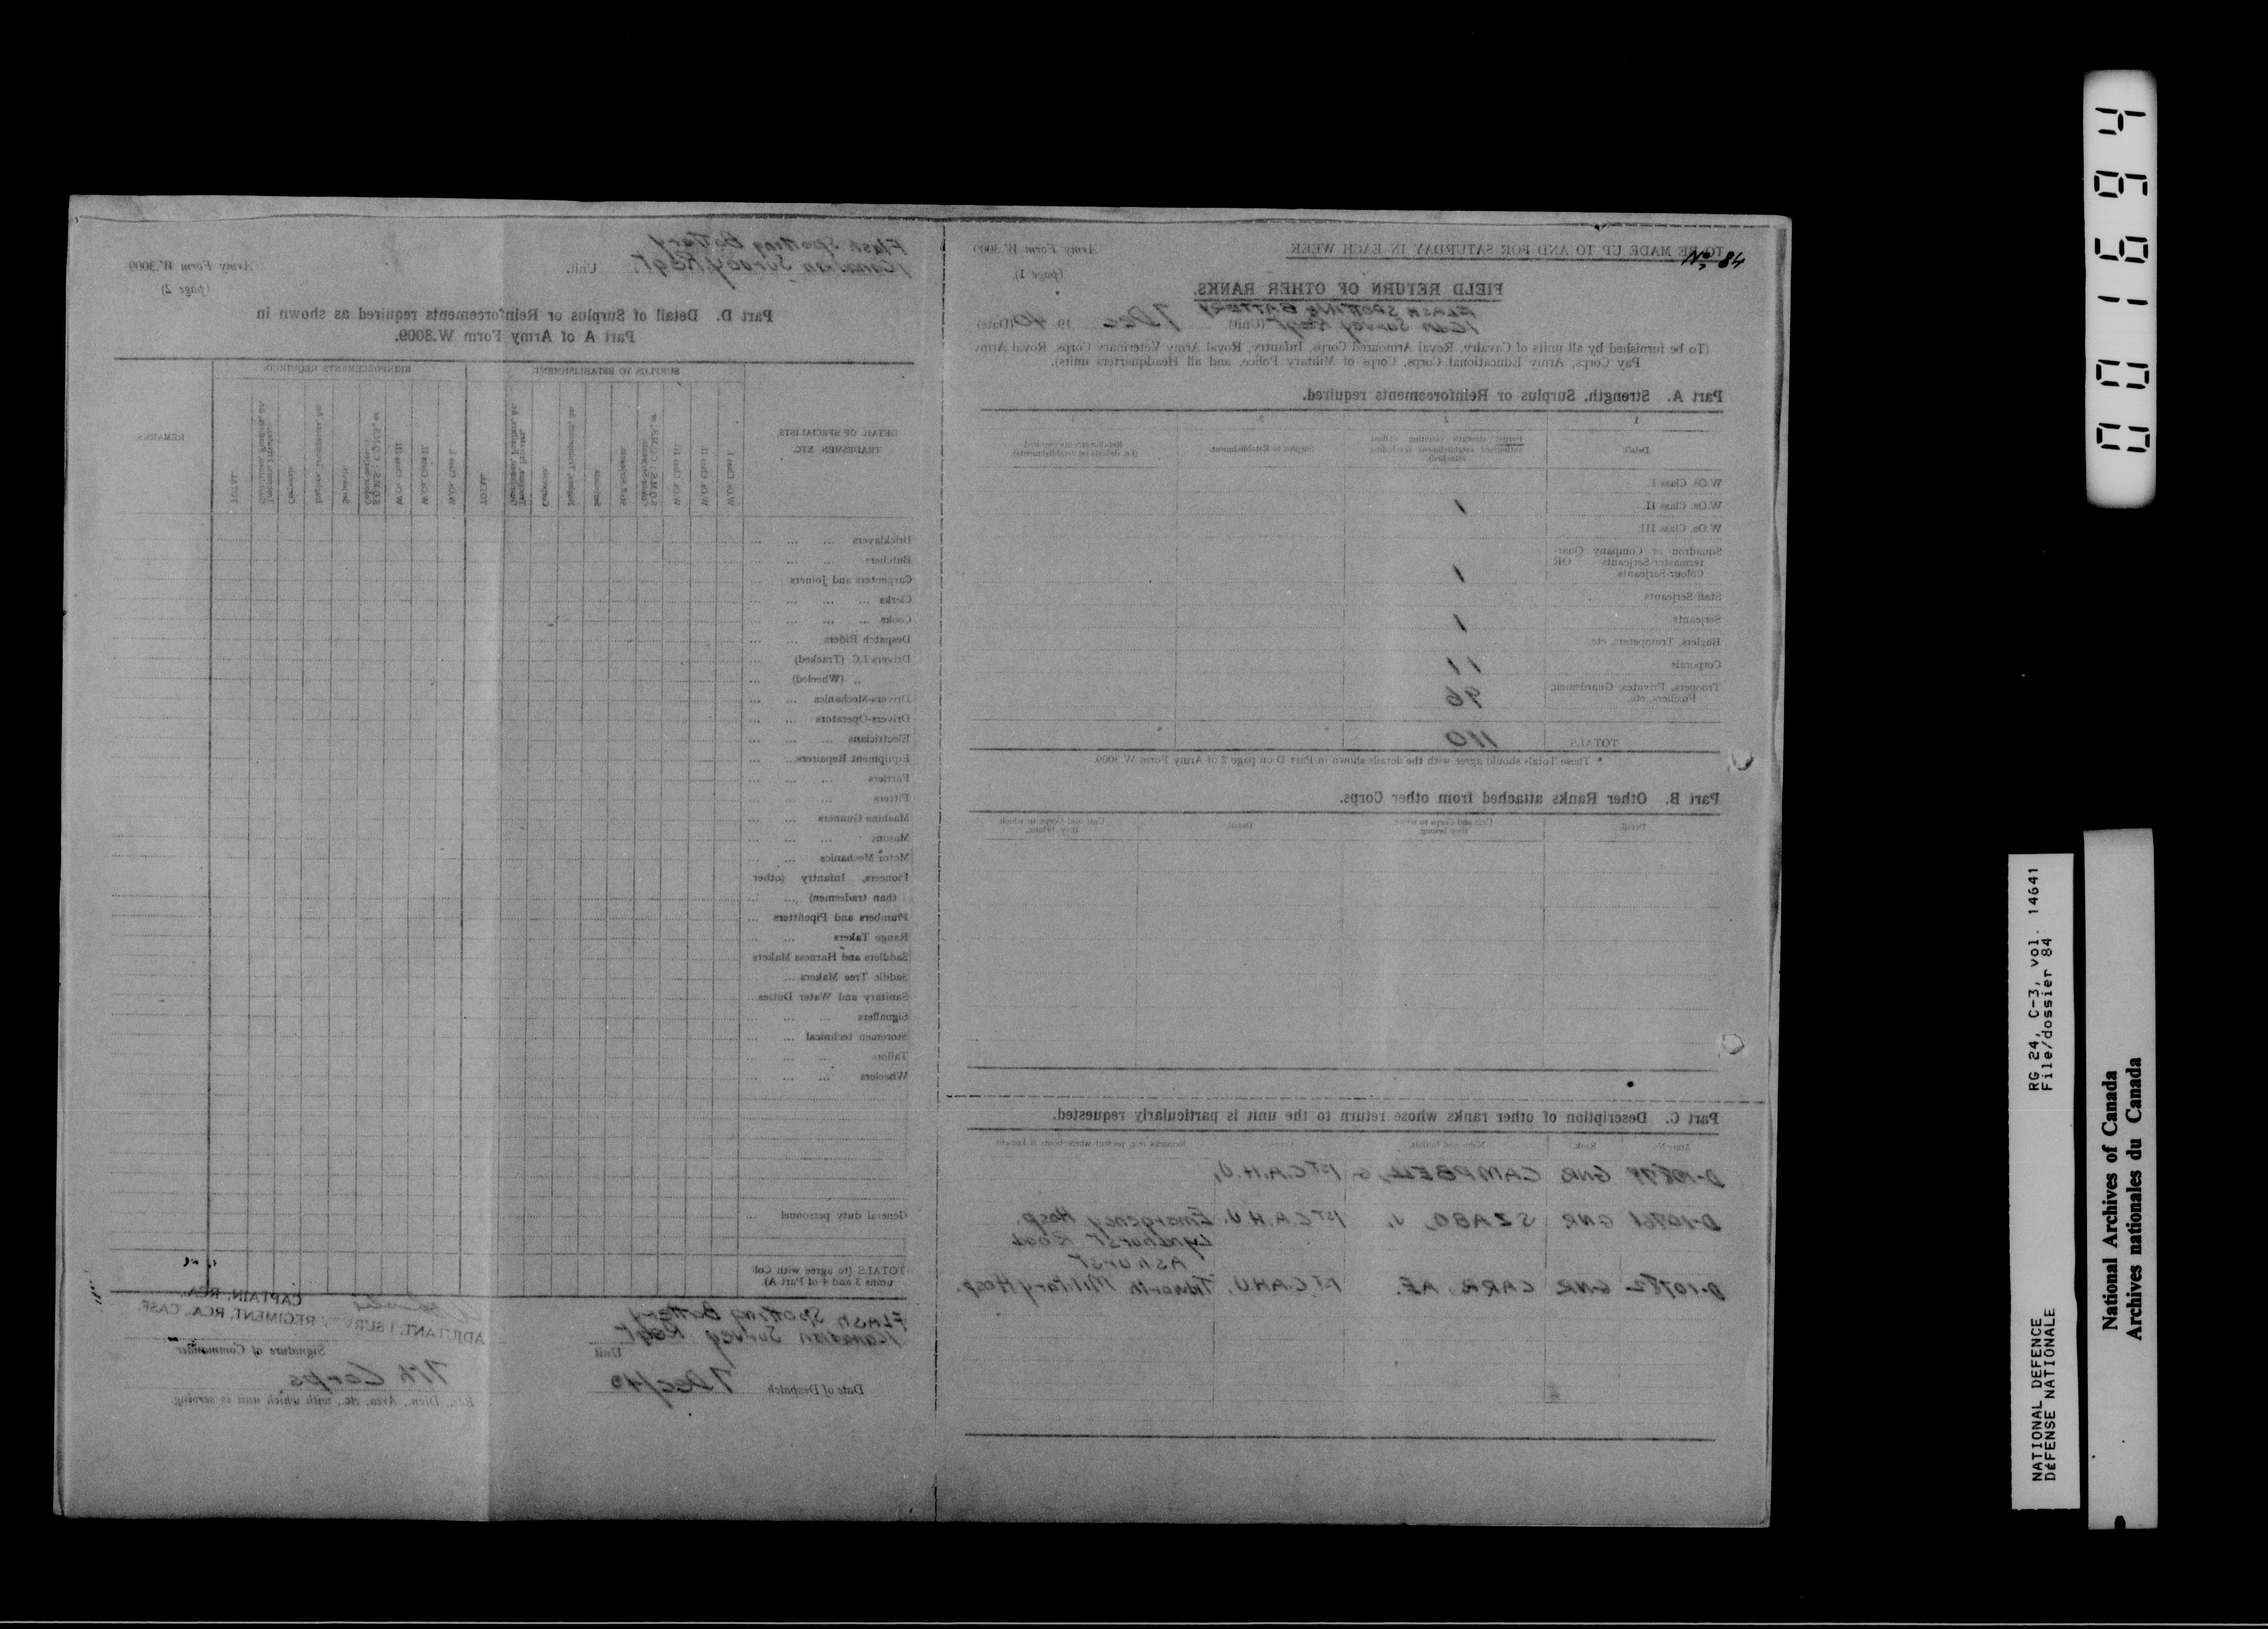 TO BE MADE UP TO AND FOR SATURDAY IN EACH WEEK
Army Form W. 3009
No. 84
(page 1)
FIELD RETURN OF OTHER RANKS.
FLASH SPOTTING BATTERY
1 Cdn Survey Regt (Unit) 7 Dec 19 40 (Date)
(To be furnished by all units of Cavalry, Royal Armoured Corps, Infantry, Royal Army Veterinary Corps, Royal Army
Pay Corps, Army Educational Corps, Corps of Military Police, and all Headquarters units).
Part A. Strength, Surplus or Reinforcements required.
1 2 3 4
Detail
Surplus to Establishment
W.Os. Class I.
W.Os. Class II. 1
W.Os. Class III.
Squadron or Company Quar-
termaster-Serjeants OR
Colour-Serjeants 1
Staff-Serjeants
Serjeants 1
Buglers, Trumpeters, etc.
Corporals 11
Troopers, Privates, Guardsmen,
Fusiliers, etc. 96
TOTALS 110
* These Totals should agree with the details shown in Part D on page 2 of Army Form W 3009.
Part B. Other Ranks attached from other Corps.
Detail
Unit and Corps to which
they belong.
Detail
Unit and Corps to which
they belong.
Part C. Description of other ranks whose return to the unit is particularly requested.
Army No. Rank Name and Initials Corps
GNR CAMPBELL, G 1ST C.A.H.U,
D-10761 GNR SZABO, J, 1ST C.A.H.U. Emergency Hosp.
Lyndhurst Road
Ashurst
D-10782 GNR CARR, AE. 1ST C.A.H.U. Tidworth Military Hosp.
Flash Spotting Battery
1 Canadian Survey Regt Unit.
Army Form W.3009
(page 2)
Part D. Detail of Surplus or Reinforcements required as shown in
Part A of Army Form W.3009.
DETAIL OF SPECIALISTS,
TRADESMEN, ETC.
SURPLUS TO ESTABLISHMENT.
REINFORCEMENTS REQUIRED.
REMARKS
W.Os. Class I.
W.Os. Class II.
W.Os. Class III.
S.Q.M.S.; C.Q.M.S., or
Colour-Serjeants
Staff-Serjeants
Serjeants
Buglers, Trumpeters, &c.
Corporals
Troopers, Privates,
Guardsmen, Fusiliers, &c.
TOTAL
W.Os. Class I.
W.Os. Class II.
W.Os. Class III.
S.Q.M.S.; C.Q.M.S., or
Colour-Serjeants
Serjeants
Buglers, Trumpeters, &c.
Corporals
Troopers, Privates,
Guardsmen, Fusiliers, &c.
TOTAL
Bricklayers
Butchers
Carpenters and Joiners
Clerks
Cooks
Despatch Riders
Drivers I.C. (Tracked)
,, (Wheeled)
Drivers-Mechanics
Drivers-Operators
Electricians
Equipment Repairers
Farriers
Fitters
Machine Gunners
Masons
Motor Mechanics
Pioneers, Infantry (other
than tradesmen)
Plumbers and Pipefitters
Range Takers
Saddlers and Harness Makers
Saddle Tree Makers
Sanitary and Water Duties
Signallers
Storemen technical
Tailors
Wheelers
General duty personnel
TOTALS (to agree with Col-
umns 3 and 4 of Part A)
Flash Spotting Battery
1 Canadian Survey Regt
Unit
CAPTAIN, RCA.,
ADJUTANT, 1 SURVEY REGIMENT, RCA., CASF.
Signature of Commander
7th Corps
Bde., Divn., Area, etc., with which unit is serving
Date of Despatch 7 Dec/40
0001694
RG 24, C-3, vol. 14641
File/dossier 84
NATIONAL DEFENCE
DÉFENSE NATIONALE
National Archives of Canada
Archives nationales du Canada